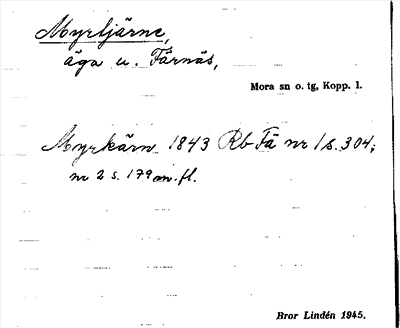 Myrljärne,
äga u. Färnäs,
Mora sn o. tg, Kopp. l.
Myrkärn 1843 Rb Fä nr 1 s. 304;
nr 2 s. 179 m. fl.
Bror Lindén 1945.